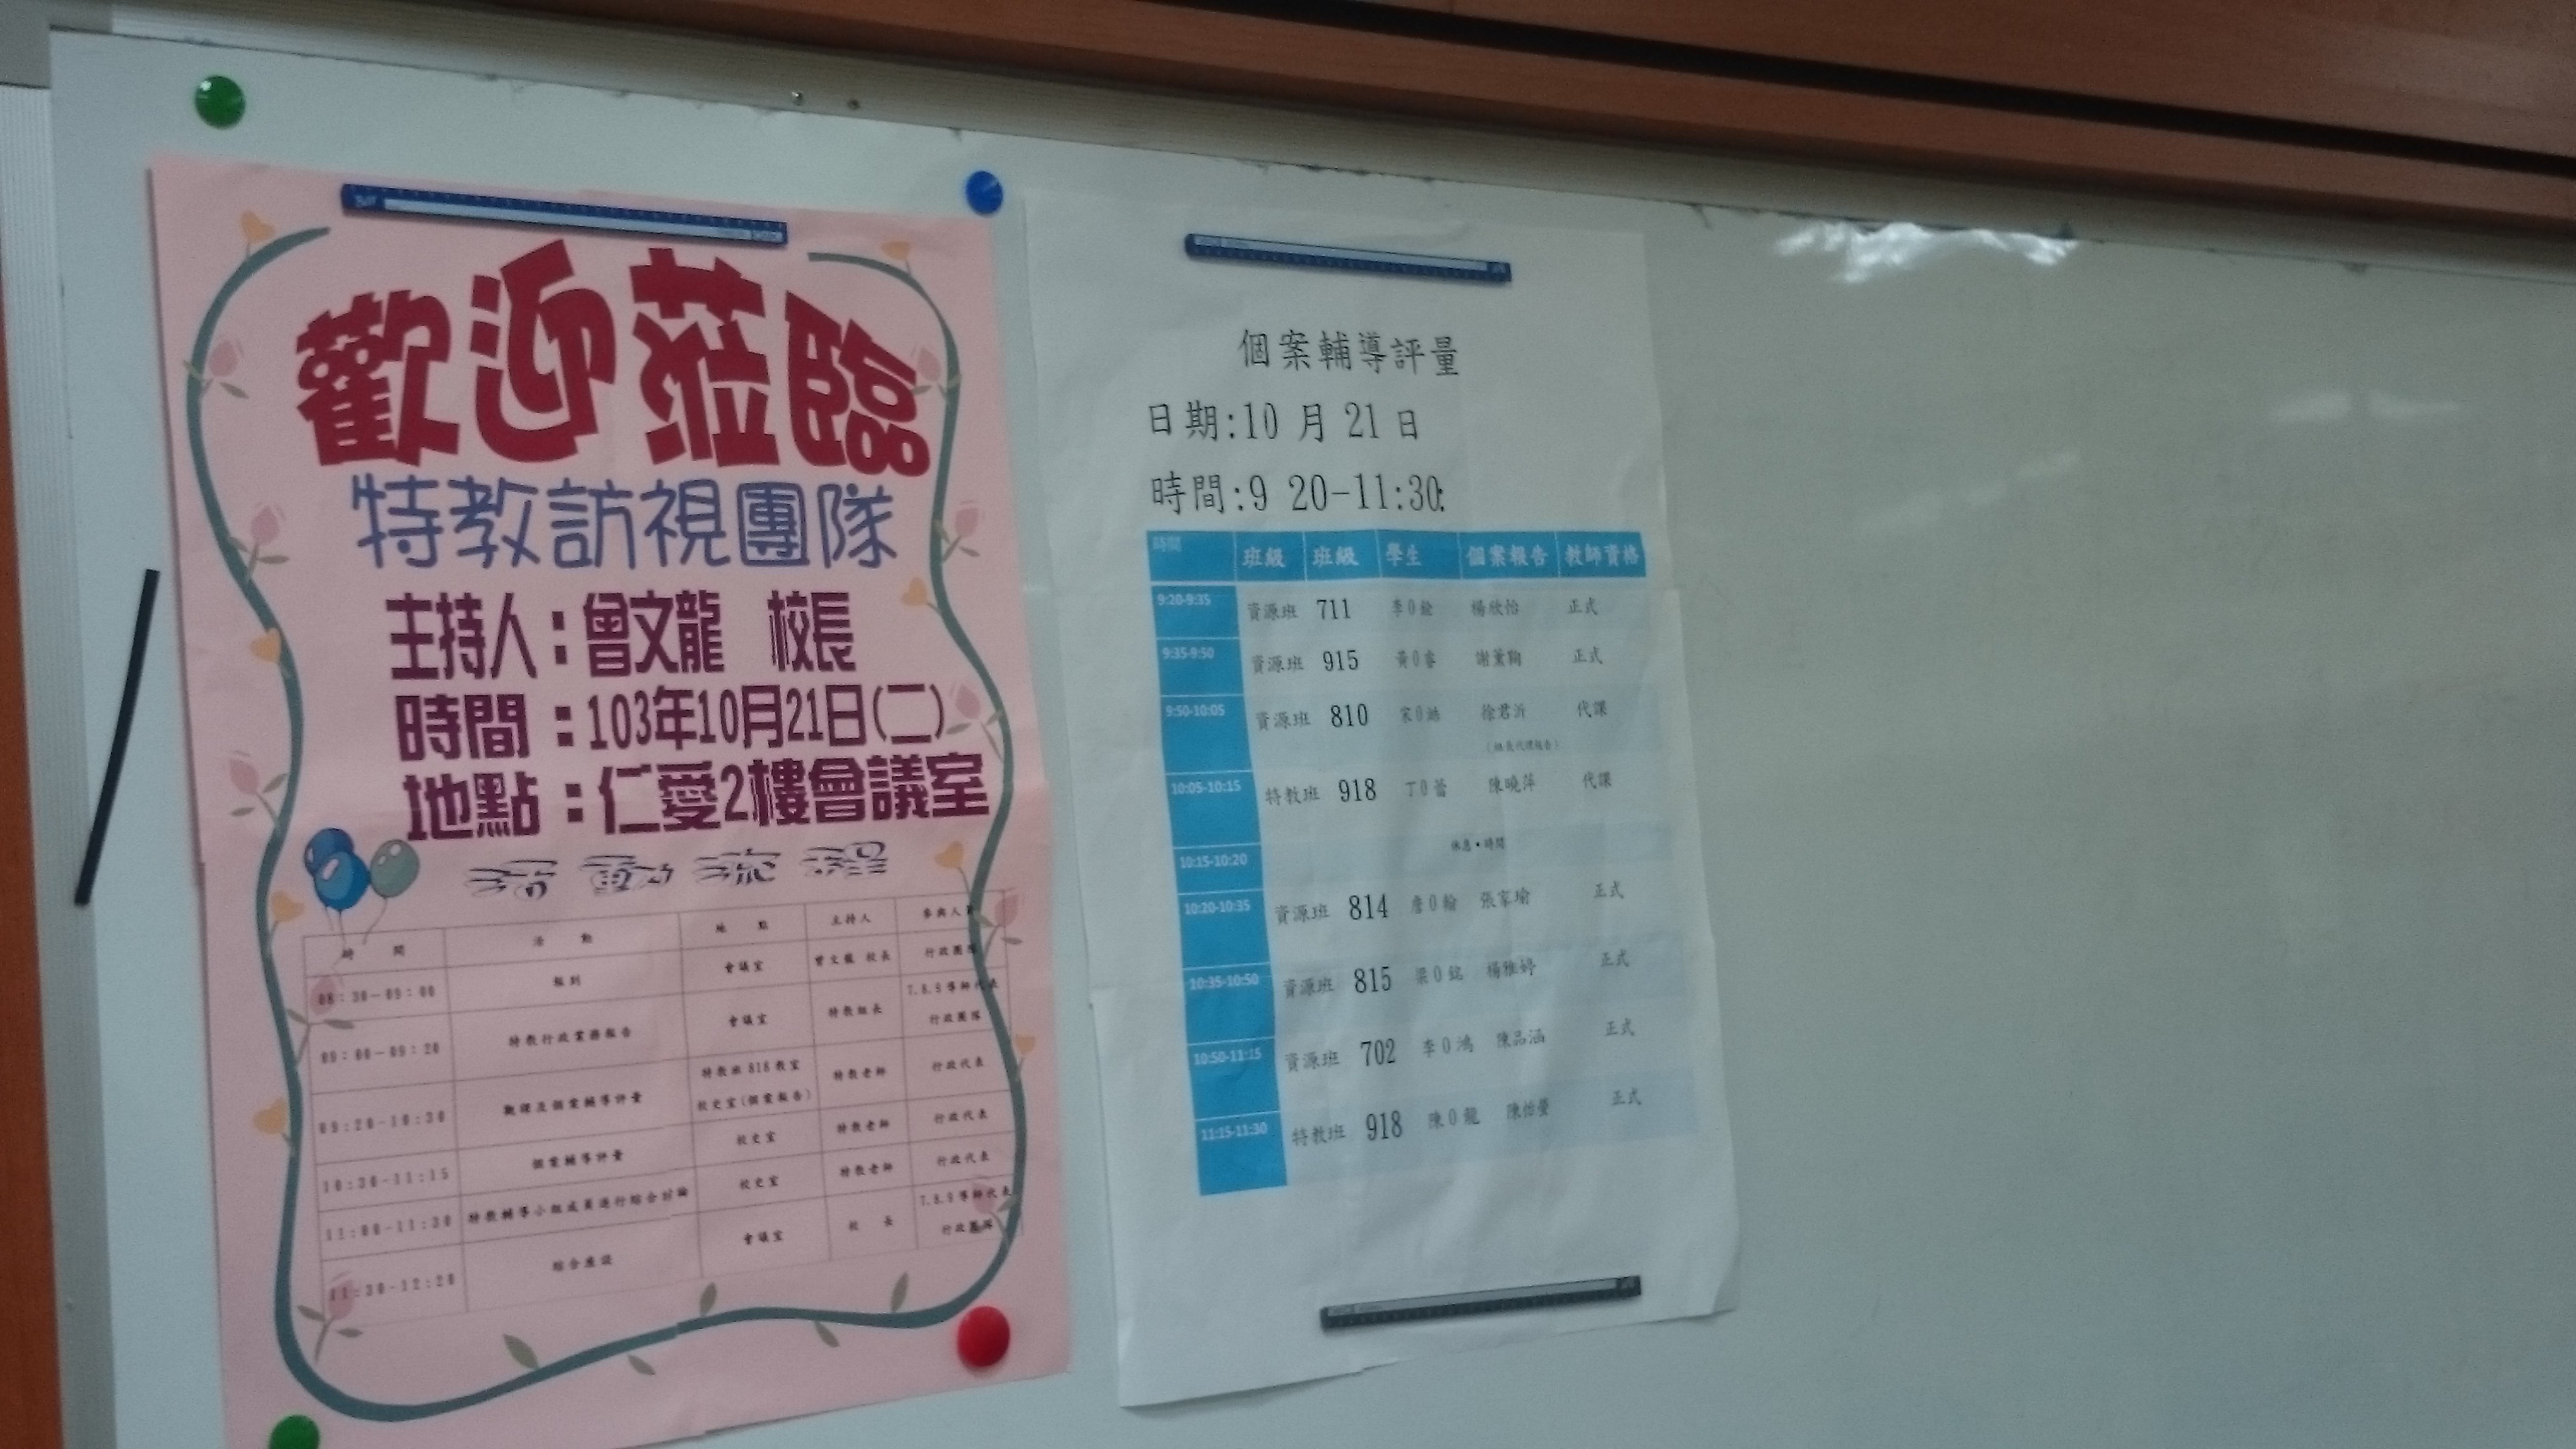 歡迎蒞臨
特教訪視團隊
主持人：曾文龍 校長
時間：103年10月21日(二)
地點：仁愛2樓會議室
活動流程
時 間 活 動 地 點 主持人 參與人員
08:30-09:00 報到 會議室 曾文龍 校長 行政團隊
09:00-09:20 特教行政業務報告 會議室 特教組長 7.8.9導師代表 行政團隊
09:20-10:30 觀課及個案輔導評量 特教班818教室 校史室(個案報告) 特教老師 行政代表
10:30-11:15 個案輔導評量 校史室 特教老師 行政代表
11:00-11:30 特教輔導小組成員進行綜合討論 校史室 特教老師 行政代表
11:30-12:20 綜合座談 會議室 校 長 7.8.9導師代表 行政團隊
個案輔導評量
日期:10 月 21 日
時間:9 20-11:30:
時間 班級 班級 學生 個案報告 教師資格
9:20-9:35 資源班 711 李0銓 楊欣怡 正式
9:35-9:50 資源班 915 黃0睿 謝薰鞠 正式
9:50-10:05 資源班 810 宋0 徐君沂 代課
(組長代理報告)
10:05-10:15 特教班 918 丁0蕾 陳曉萍 代課
10:15-10:20 休息•時間
10:20-10:35 資源班 814 詹0翰 張家瑜 正式
10:35-10:50 資源班 815 梁0銘 楊雅婷 正式
10:50-11:15 資源班 702 李0鴻 陳品涵 正式
11:15-11:30 特教班 918 陳0龍 陳怡螢 正式